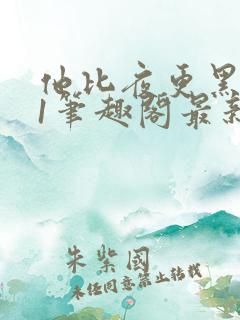 他比夜更黑
1筆趣閣最新
朱紫國
未经同意禁止转载